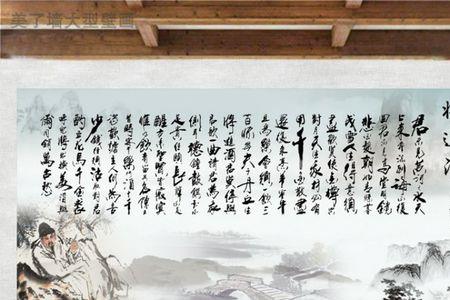 美了墙大型壁画
将进酒
君不见黄河之水天
上来奔流到海不复
回君不见高堂明镜
悲白发朝如青丝暮
成雪人生得意须
尽欢莫使金樽空
对月天生我材必有
用千金散尽
还复来烹羊宰牛
且为乐会须一饮三
百杯岑夫子丹丘生
将进酒君莫停与
君歌一曲请君为我
侧耳听钟鼓馔玉不
足贵但愿长醉不
醒古来圣贤皆寂寞
惟有饮者留其名陈王
昔时宴平乐斗酒十千
恣欢谑主人何为言
少钱径须沽取对君
酌五花马千金裘
呼儿将出换美酒与
尔同销万古愁